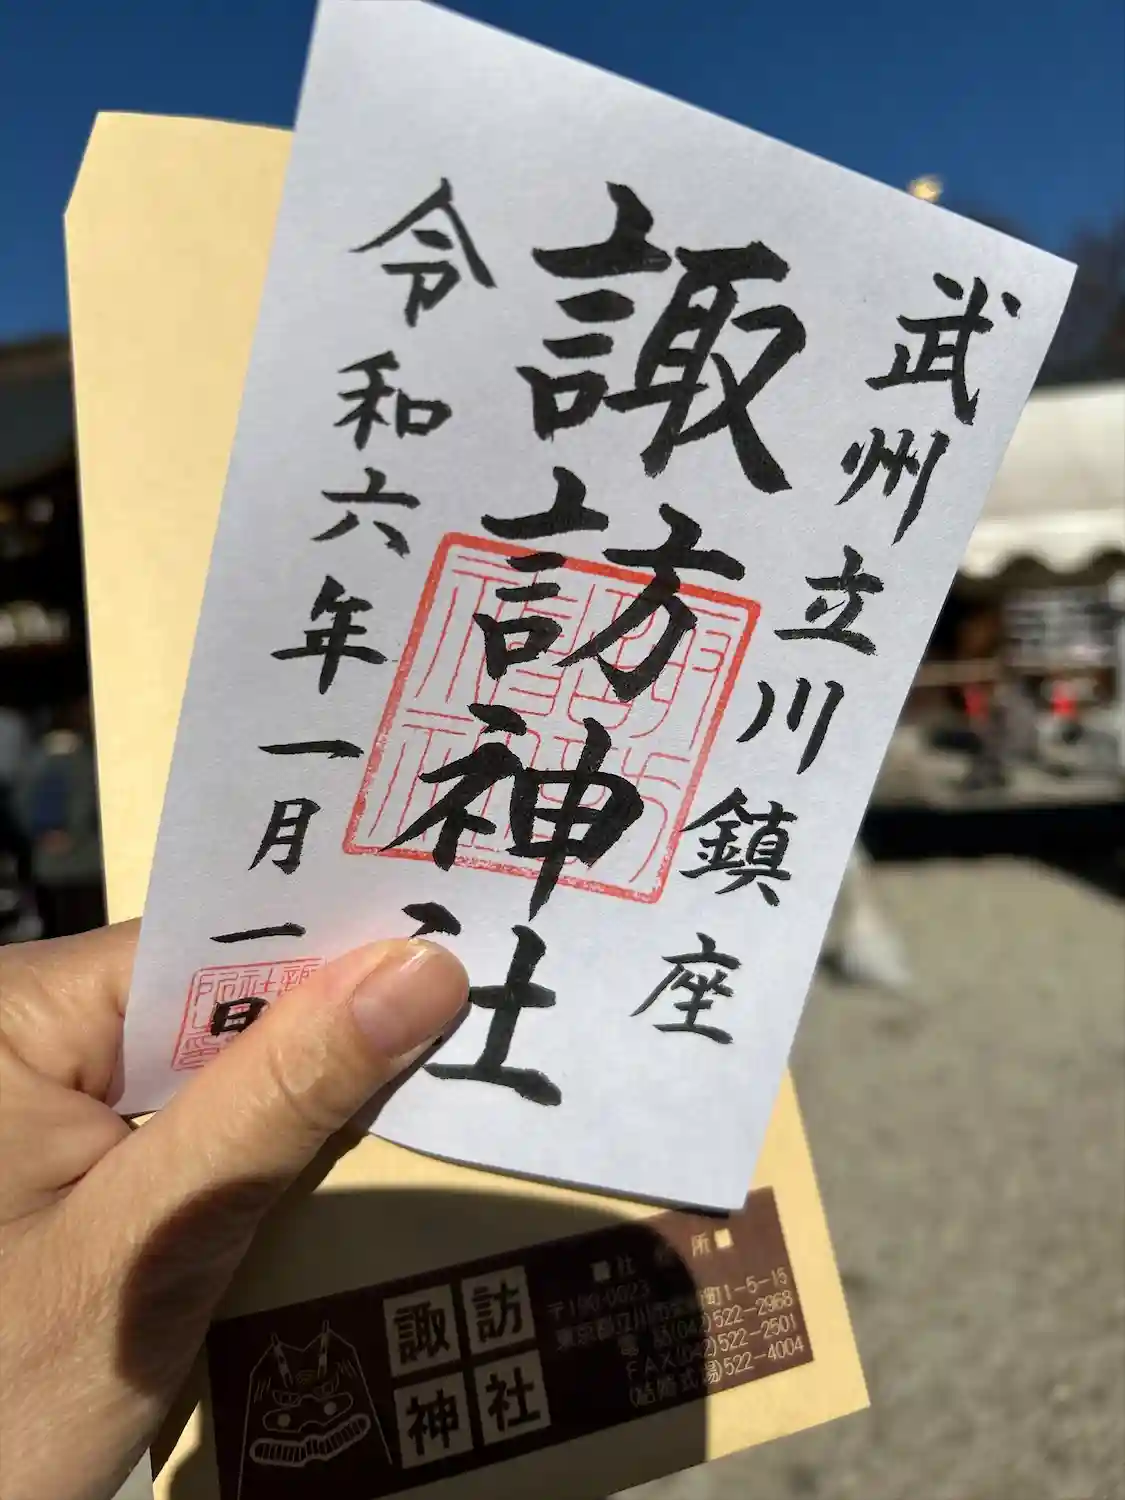 武州立川鎮座
諏訪神社
令和六年一月一日
諏訪
神社
■社務所■
〒190-0023
東京都立川市柴崎町1-5-15
電 話(042)522-2968
FAX(042)522-2501
(結婚式場)522-4004